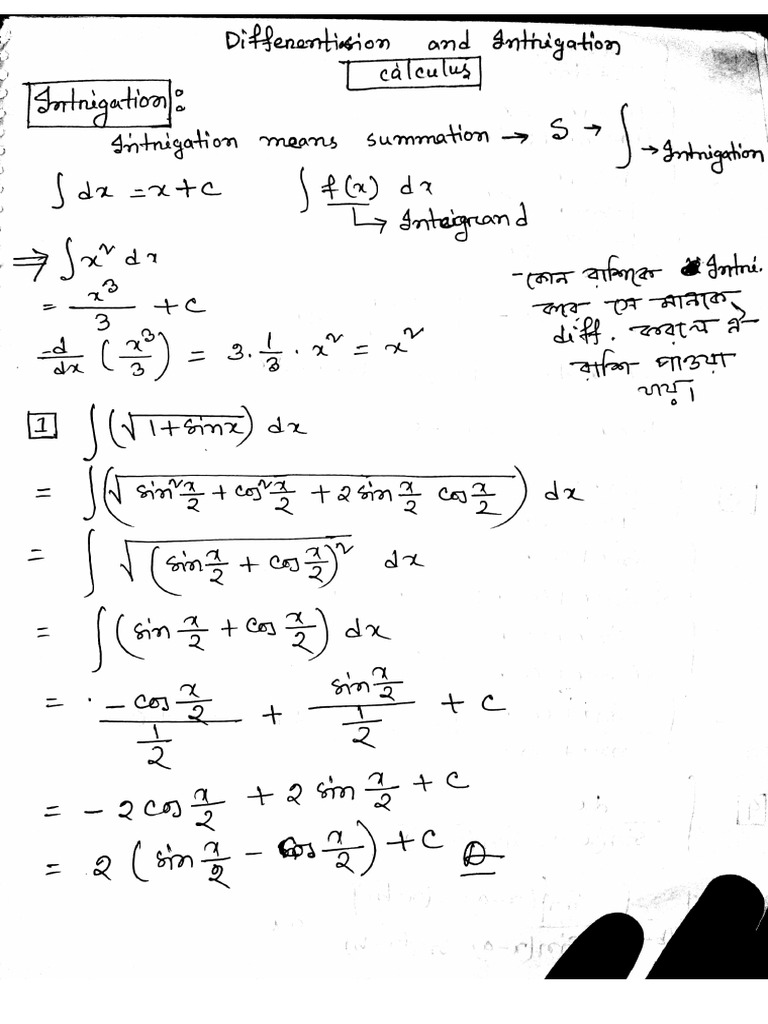 Differentision and Intrigation
calculus
Intrigation:
Intrigation means summation → S → ∫ → Intrigation
∫ dx = x + c ∫ f(x) dx
↳ Integrand
⇒ ∫ x² dx
= x³/3 + c
d/dx (x³/3) = 3 · 1/3 · x² = x²
- কোন রাশিকে Intri.
করে সে মানকে
diff. করলে ঐ
রাশি পাওয়া
যায়।
1 ∫ (√(1 + sinx)) dx
= ∫ (√(sin² x/2 + cos² x/2 + 2 sin x/2 cos x/2)) dx
= ∫ √((sin x/2 + cos x/2)²) dx
= ∫ (sin x/2 + cos x/2) dx
= (- cos x/2)/(1/2) + (sin x/2)/(1/2) + c
= - 2 cos x/2 + 2 sin x/2 + c
= 2 (sin x/2 - cos x/2) + c